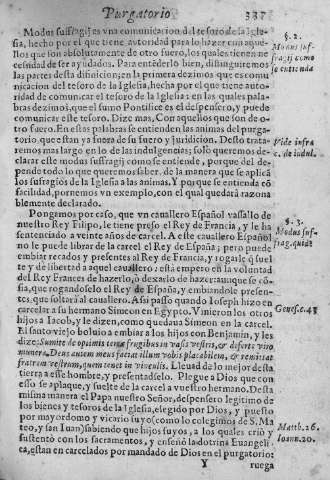 Purgatorio 337
Modus suffragij es vna comunicacion del tesoro de la Igle-
sia, hecho por el que tiene autoridad para lo hazer con aque-
llos que son absolutamente de otro fuero, los quales tienen ne-
cesidad de ser ayudados. Para entēderlo bien, distinguiremos
las partes desta difinicion; en la primera dezimos que es comu
nicacion del tesoro de la Iglesia, hecha por el que tiene auto-
ridad de comunicar el tesoro de la Iglesia: en las quales pala-
bras dezimos, que el sumo Pontifice es el despensero, y puede
comunicar este tesoro. Dize mas, Con aquellos que son de o-
tro fuero. En estas palabras se entienden las animas del purga-
torio, que estan ya fuera de su fuero y juridicion. Desto trata-
remos mas largo en lo de las indulgencias; solo queremos de-
clarar este modus suffragij como se entiende, porque del de-
pende todo lo que queremos saber, de la manera que se aplicā
los sufragiōs de la Iglesia a las animas. Y porque se entienda cō
facilidad, pornemos vn exemplo, con el qual quedarà razona
blemente declarado.
Pongamos por caso, que vn cauallero Español vassallo de
nuestro Rey Filipo, le tiene preso el Rey de Francia, y le ha
sentenciado a veinte años de carcel. A este cauallero Español
no le puede librar de la carcel el Rey de España; pero puede
embiar recados y presentes al Rey de Francia, y rogarle q̃ suel
te y de libertad a aquel cauallero: està empero en la voluntad
del Rey Frances de hazerlo, ò dexarlo de hazer: aunque se cō-
fia, que rogandoselo el Rey de España, y embiandole presen-
tes, que soltarà al cauallero. Asi passò quando Ioseph hizo en
carcelar a su hermano Simeon en Egypto. Vinieron los otros
hijos a Iacob, y le dizen, como quedaua Simeon en la carcel.
El santo viejo boluio a embiar a los hijos con Benjamin, y les
dize: Sumite de optimis terræ frugibus in vasis vestris, & deferte viro
munera. Deus autem meus faciat illum vobis placabilem, & remittat
fratrem vestrum, quem tenet in vinculis. Lleuad de lo mejor desta
tierra a esse hombre, y presentadselo. Plegue a Dios que con
esso se aplaque, y suelte de la carcel a vuestro hermano. Desta
misma manera el Papa nuestro Señor, despensero legitimo de
los bienes y tesoros de la Iglesia, elegido por Dios, y puesto
por mayordomo y vicario suyo (como lo colegimos de S. Ma
teo, y san Iuan) sabiendo que hijos suyos, a los quales criò y
sustentò con los sacramentos, y enseñò la dotrina Euangeli-
ca, estan en carcelados por mandado de Dios en el purgatorio:
Y ruega
§. 2.
Modus suf-
fragij como
se entiende
Vide infra
c. de indul.
§. 3.
Modus suf-
frag. quid?
Genes. c. 43
Matth. 16.
Ioann. 20.